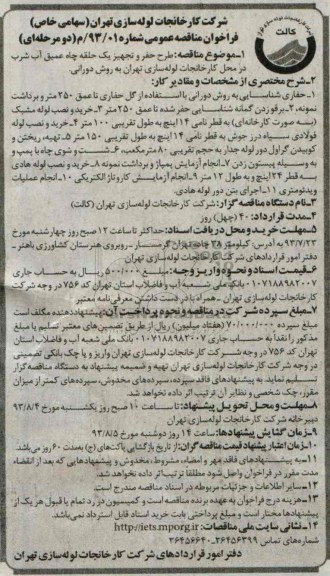 کالت
شرکت کارخانجات لوله‌سازی تهران (سهامی خاص)
فراخوان مناقصه عمومی شماره ۹۳/۰۱/م (دو مرحله‌ای)
۱-موضوع مناقصه: طرح حفر و تجهیز یک حلقه چاه عمیق آب شرب
در محل کارخانجات لوله‌سازی تهران به روش دورانی
۲-شرح مختصری از مشخصات و مقادیر کار:
۱-حفاری شناسایی به روش دورانی با استفاده از گل حفاری تا عمق ۲۵۰ متر و برداشت
نمونه، ۲-برقو زدن گمانه شناسایی حفر شده تا عمق ۲۵۰ متر ۳-خرید و نصب لوله مشبک
(بصورت کارخانه‌ای) به قطر نامی ۱۴ اینچ به طول تقریبی ۱۰۰ متر ۴-خرید و نصب لوله
فولادی سیاه درز جوش به قطر نامی ۱۴ اینچ به طول تقریبی ۱۵۰ متر ۵-تهیه، ریختن و
کوبیدن گراول دور لوله جدار به حجم تقریبی ۸۰ مترمکعب، ۶-شست و شوی چاه با پمپ و
به وسیله پیستون زدن ۷-انجام آزمایش پمپاژ و برداشت نمونه ۸-خرید و نصب لوله هادی
به قطر ۲۴ اینچ و به طول ۱۲ متر ۹-انجام آزمایش کاروتاژ الکتریکی ۱۰-انجام عملیات
ویدئومتری ۱۱-اجرای بتن دور لوله هادی.
۳-نام دستگاه مناقصه گزار: شرکت کارخانجات لوله‌سازی تهران (کالت)
۴-مدت قرارداد: ۴۰ (چهل) روز
۵-مهلت خرید و محل دریافت اسناد: حداکثر تا ساعت ۱۲ صبح روز چهارشنبه مورخ
۹۳/۷/۲۳ به آدرس: کیلومتر ۳۸ جاده تهران گرمسار - روبروی هنرستان کشاورزی باهنر -
دفتر امور قراردادهای شرکت کارخانجات لوله‌سازی تهران
۶-قیمت اسناد و نحوه واریز وجه: مبلغ ۵۰۰/۰۰۰ ریال به حساب جاری
۱۰۷۱۱۸۸۹۸۲۰۰۷ بانک ملی شعبه آب و فاضلاب استان تهران کد ۷۵۶ در وجه شرکت
کارخانجات لوله‌سازی تهران - همراه با در دست داشتن معرفی‌نامه معتبر
۷-مبلغ سپرده شرکت در مناقصه و نحوه پرداخت آن: پیشنهاددهنده مکلف است
مبلغ سپرده ۷۰/۰۰۰/۰۰۰ (هفتاد میلیون) ریال از طریق تضمین‌های معتبر تسلیم یا مبلغ
مذکور را نقداً به حساب جاری ۱۰۷۱۱۸۸۹۸۳۰۰۷ بانک ملی شعبه آب و فاضلاب استان
تهران کد ۷۵۶ در وجه شرکت کارخانجات لوله‌سازی تهران واریز و یا چک بانکی تضمینی
در وجه شرکت کارخانجات لوله‌سازی تهران تهیه و ضمیمه پیشنهاد به دستگاه مناقصه گزار
تسلیم نماید. به پیشنهادهای فاقد سپرده، سپرده‌های مخدوش، سپرده‌های کمتر از میزان
مقرر، چک شخصی و نظایر آن ترتیب اثر داده نخواهد شد.
۸-مهلت و محل تحویل پیشنهاد: تا ساعت ۱۰ صبح روز یکشنبه مورخ ۹۳/۸/۴
دبیرخانه شرکت کارخانجات لوله‌سازی تهران
۹-زمان گشایش پیشنهادها: ساعت ۱۴ روز دوشنبه مورخ ۹۳/۸/۵
۱۰-زمان اعتبار پیشنهاد قیمت مناقصه گران: از تاریخ بازگشایی پاکت‌های (ج) بمدت ۶۰ روز می‌باشد.
۱۱-به پیشنهادهای فاقد مهر و امضاء، مشروط، مخدوش و پیشنهادهایی که بعد از انقضاء
مدت مقرر در فراخوان واصل شود مطلقاً ترتیب اثر داده نخواهد شد.
۱۲-سایر اطلاعات و جزئیات مربوطه در اسناد مناقصه مندرج است.
۱۳-هزینه درج فراخوان به عهده برنده مناقصه است و کمیسیون در رد تمام یا قبول هر یک از
پیشنهادها مختار است و مبلغ پرداختی بابت خرید اسناد قابل استرداد نمی‌باشد.
۱۴-نشانی سایت ملی مناقصات: http://iets.mporg.ir
شماره‌های تماس ۲۶۴۵۶۳۹۹-۳۶۴۵۶۶۴۰
دفتر امور قراردادهای شرکت کارخانجات لوله‌سازی تهران